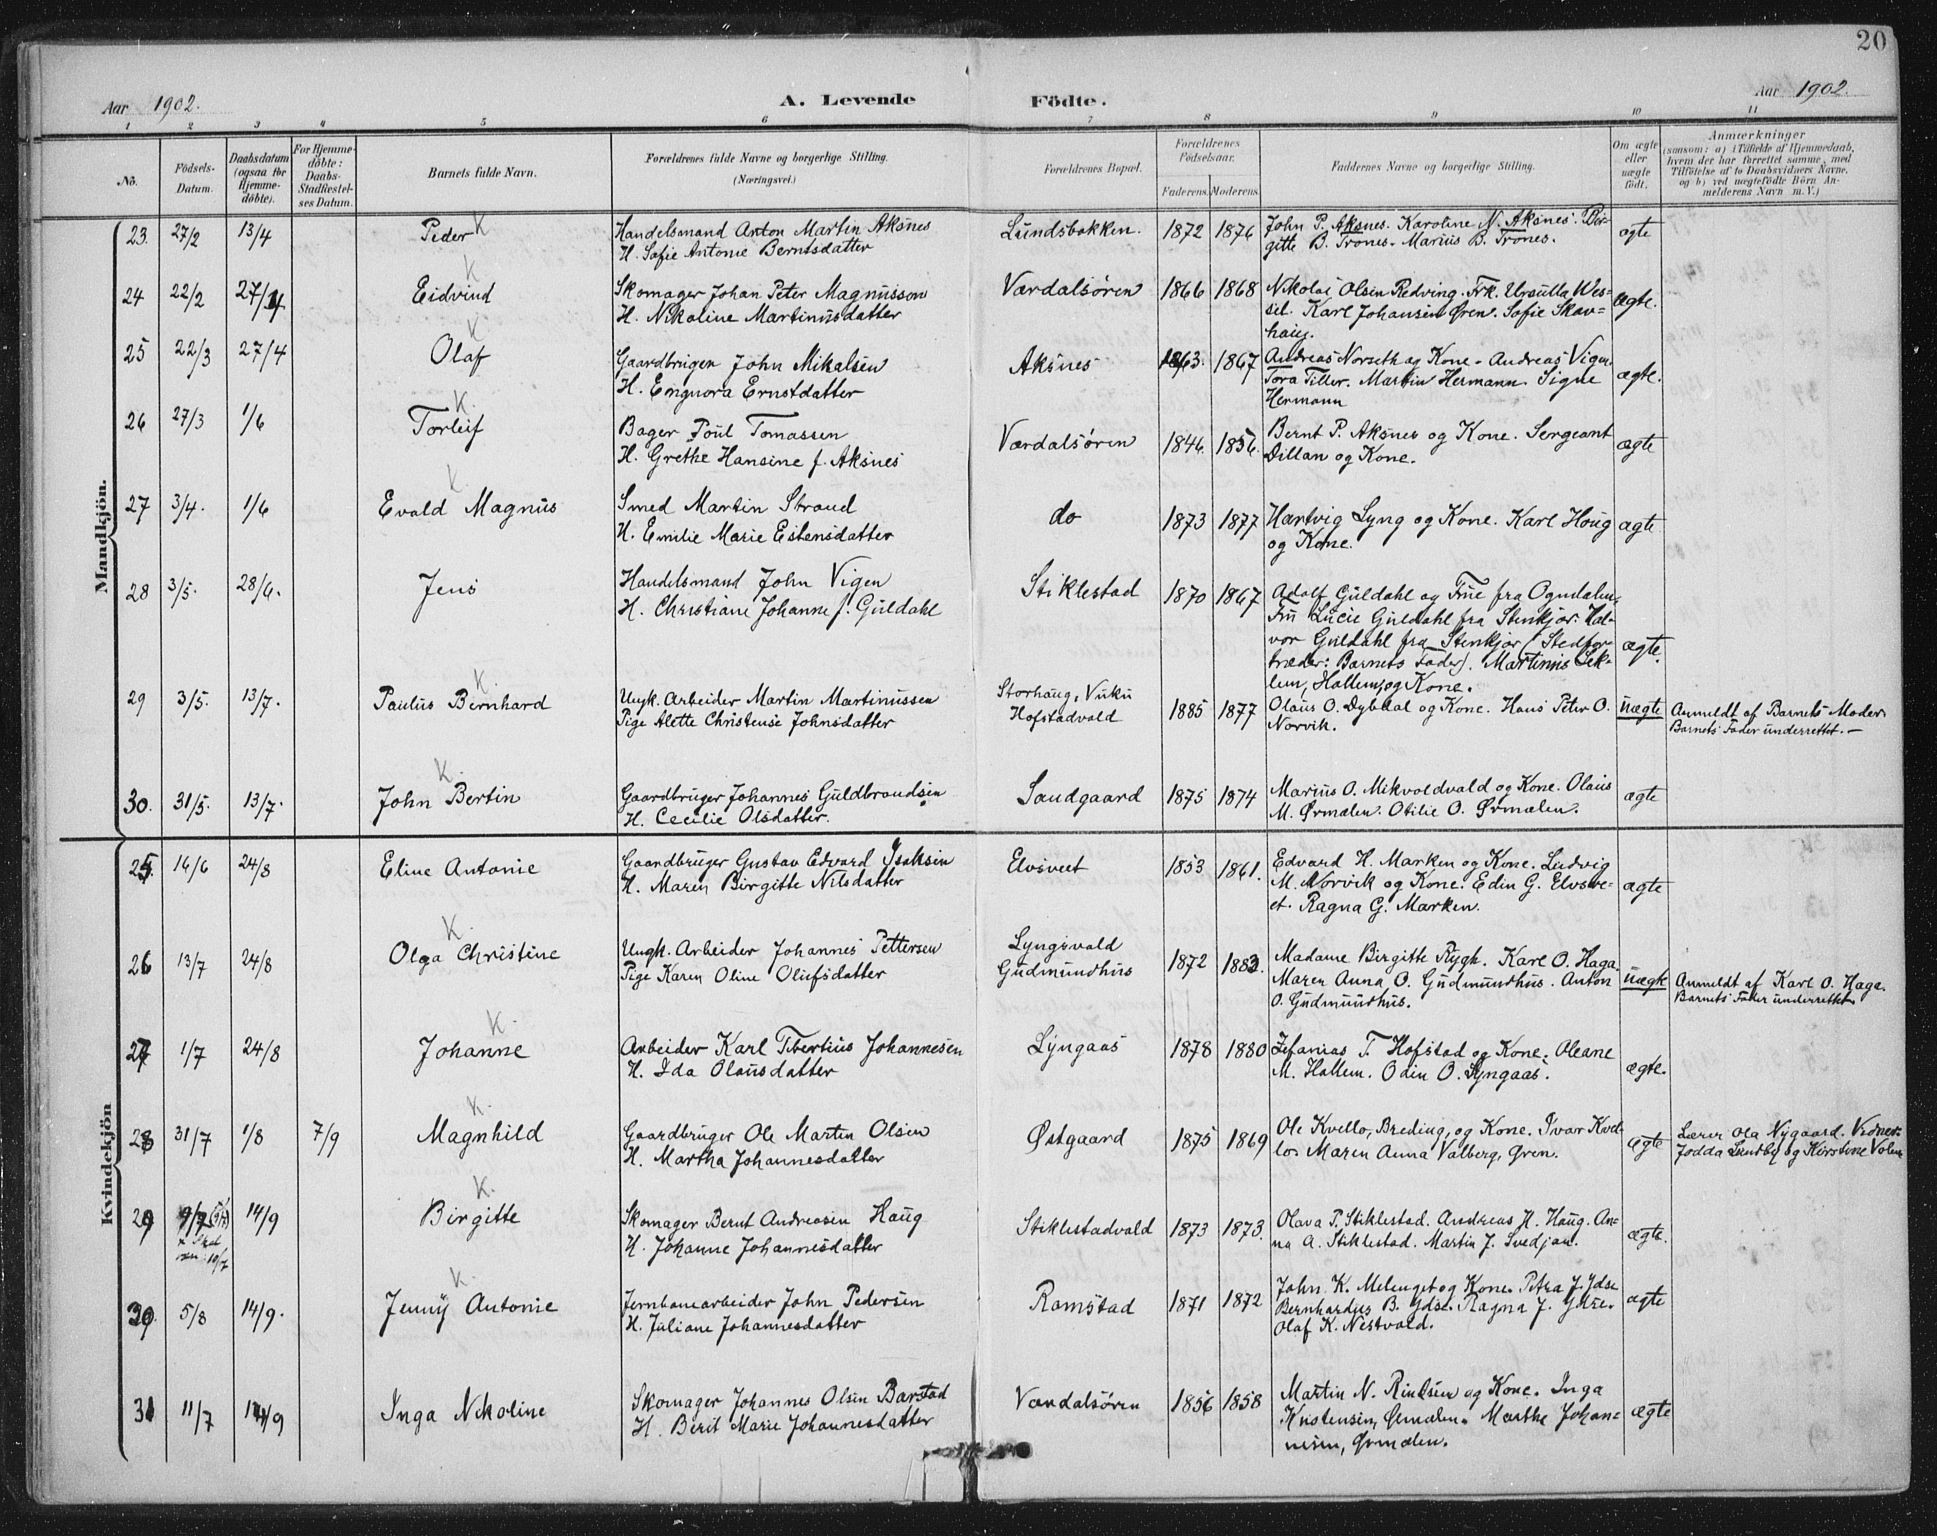 20
Aar 1902.
A. Levende
Födte.
Aar 1902.
1 2 3 4 5 6 7 8 9 10 11
No.
Födsels-
Datum.
Daabsdatum
(ogsaa for
Hjemme-
döbte).
For Hjemme-
döbte:
Daabs-
Stadfæstel-
ses Datum.
Barnets fulde Navn.
Forældrenes fulde Navne og borgerlige Stilling.
(Næringsvei.)
Forældrenes Bopæl.
Forældrenes
Födselsaar.
Faderens. Moderens.
Faddernes Navne og borgerlige Stilling.
Om ægte
eller
uægte
født.
Anmærkninger
(saasom: a) i Tilfælde af Hjemmedaab,
hvem der har forrettet samme, med
Tilföielse af to Daabsvidners Navne,
og b) ved uægtefödte Börn An-
melderens Navn m. V.)
Mandkjön.
23. 27/2 13/4 Peder K
Handelsmand Anton Martin Aksnes
H. Sofie Antonie Berntsdatter
Lundsbakken. 1872 1876
John P. Aksnes. Karoline N. Aksnes. Bir-
gitte B. Trones. Marius B. Trones.
ægte
K
24 22/2 27/4 Eidvind
Skomager Johan Peter Magnusson
H. Nikoline Martinusdatter
Værdalsøren 1866 1868
Nikolai Olsen Redving. Frk. Ursulla Wes-
sel. Karl Johansen Øren. Sofie Skav-
haug.
ægte.
K
25 22/3 27/4 Olaf
Gaardbruger John Mikalsen
H. Engnora Ernstdatter
Aksnes 1863. 1867
Andreas Norseth og Kone. Andreas Vigen
Tora Tiller. Martin Hermann. Signe
Hermann
ægte.
K.
26 27/3 1/6 Torleif
Bager Poul Tomassen
H. Grethe Hansine f. Aksnes
Værdalsøren 1846. 1856.
Bernt P. Aksnes og Kone. Sergeant
Dillan og Kone.
ægte
K
27 3/4. 1/6 Evald Magnus
Smed Martin Strand
H. Emilie Marie Estensdatter
do 1873 1877
Hartvig Lyng og Kone. Karl Houg
og Kone.
ægte
28 3/5. 28/6. Jens
Handelsmand John Vigen
H. Christiane Johanne f. Guldahl
Stiklestad 1870 1867
Adolf Guldahl og Frue fra Ogndalen,
Fru Lucie Guldahl fra Stenkjær. Hal-
vor Guldahl fra Stenkjær (Stedfor-
træder: Barnets Fader). Martinus Sek-
lem, Hallem, og Kone.
ægte.
K.
29 3/5. 13/7. Paulus Bernhard
Ungk. Arbeider Martin Martinussen
Pige Alette Christense Johnsdatter
Storhaug, Vuku
Hofstadvald
1885 1877
Olaus O. Dybdal og Kone. Hans Peter O.
Norvik.
uægte
Anmeldt af Barnets Moder.
Barnets Fader underrettet. —
K.
30. 31/5. 13/7. John Bertin
Gaardbruger Johannes Guldbrandsen
H. Cecilie Olsdatter.
Sandgaard 1875 1874
Marius O. Mikvoldvald og Kone. Olaus
M. Ørmælen. Otilie O. Ørmælen.
ægte
Kvindekjön
25. 16/6 24/8 Eline Antonie
Gaardbruger Gustav Edvard Isaksen
H. Maren Birgitte Nilsdatter
Elvsveet 1853 1861.
Edvard H. Marken og Kone. Ludvig
M. Norvik og Kone. Edin G. Elvsve-
et. Ragna G. Marken.
ægte
K
26 13/7 24/8 Olga Christine
Ungk. Arbeider Johannes Pettersen
Pige Karen Oline Olufsdatter
Lyngsvald
Gudmundhus
1872 1883.
Madame Birgitte Rygh. Karl O. Haga.
Maren Anna O. Gudmundhus. Anton
O. Gudmundhus.
uægte
Anmeldt af Karl O. Haga.
Barnets Fader underrettet.
K.
27 1/7 24/8 Johanne
Arbeider Karl Tibertius Johannesen
H. Ida Olausdatter
Lyngaas 1878 1880
Zefanias T. Hofstad og Kone. Oleane
M. Hallem. Odin O. Lyngaas.
ægte.
K.
28 31/7 1/8 7/9 Magnhild
Gaardbruger Ole Martin Olsen
H. Martha Johannesdatter
Østgaard 1875 1869
Ole Kvello, Breding, og Kone. Ivar Kvel-
lo. Maren Anna Valberg, Øren.
ægte
Lærer Ola Nygaard. Vidner:
Jodda Lundby og Kirstine Volen
K.
29 9/7 14/9 Birgitte
Skomager Bernt Andreasen Haug
H. Johanne Johannesdatter
Stiklestadvald 1873 1873.
Olava P. Stiklestad. Andreas H. Haug. An-
na A. Stiklestad. Martin J. Svedjan.
ægte.
K
30. 5/8 14/9. Jenny Antonie
Jernbanearbeider John Pedersen
H. Juliane Johannesdatter
Ramstad 1871 1872
John K. Melenget og Kone. Petra J. Ydse
Bernhardus B. Ydse. Ragna J. Ydse.
Olaf K. Nestvold.
ægte
31 11/7 14/9 Inga Nikoline
Skomager Johannes Olsen Barstad
H. Berit Marie Johannesdatter
Værdalsøren 1856 1858
Martin N. Rindsem og Kone. Inga
Kristensen, Ørmælen. Marthe Johan-
nesen, Ørmælen.
ægte